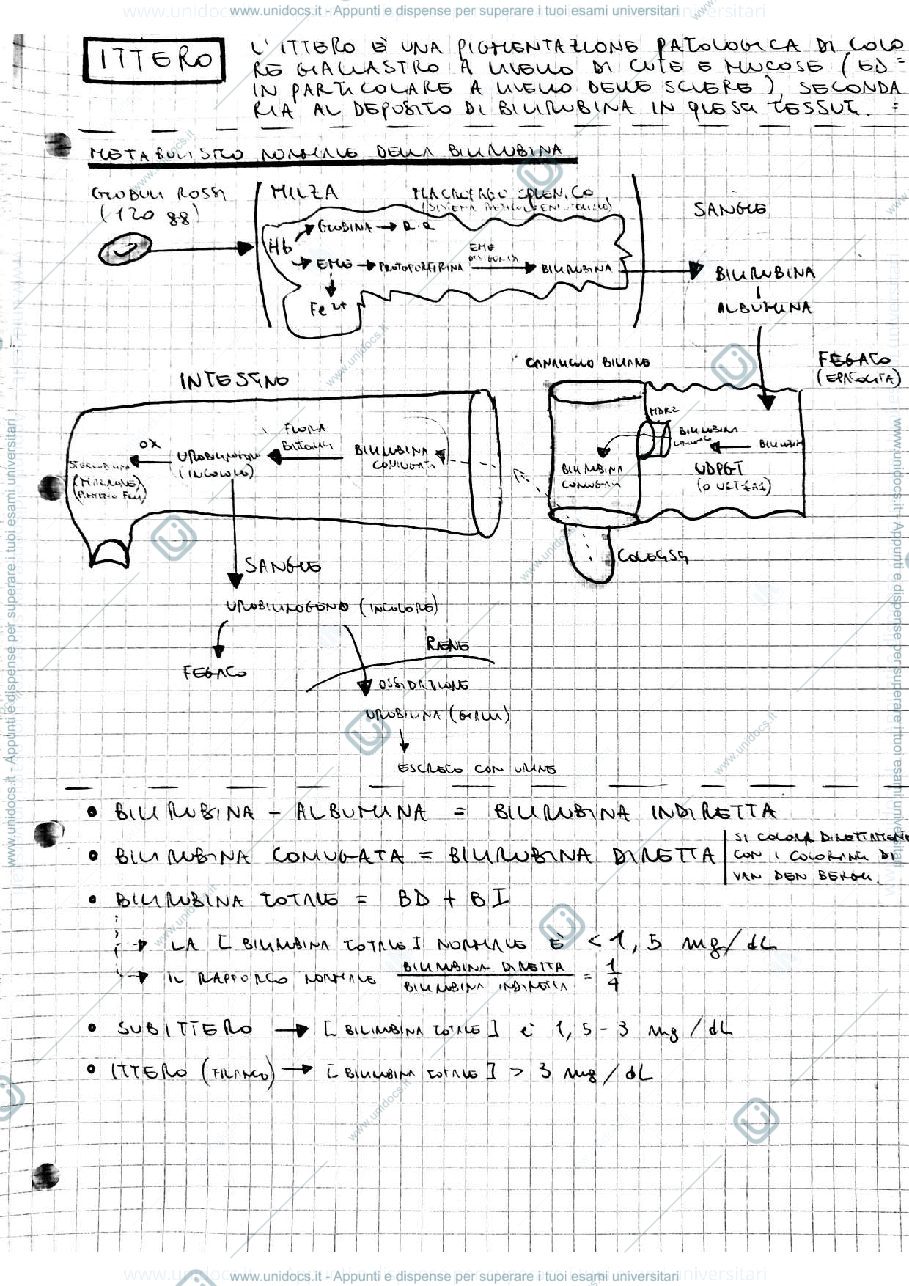 www.unidocs.it - Appunti e dispense per superare i tuoi esami universitari
ITTERO
L'ITTERO È UNA PIGMENTAZIONE PATOLOGICA DI COLO
RE GIALLASTRO A LIVELLO DI CUTE E MUCOSE (ED
IN PARTICOLARE A LIVELLO DELLE SCLERE), SECONDA
RIA AL DEPOSITO DI BILIRUBINA IN QUESTI TESSUTI.
METABOLISMO NORMALE DELLA BILIRUBINA
GLOBULI ROSSI
(120 gg)
MILZA
MACROFAGO SPLENICO
Hb
GLOBINA → A.A.
EME → PROTOPORFIRINA
EME
BILIRUBINA
Fe2+
SANGUE
BILIRUBINA
ALBUMINA
FEGATO
(EPATOCITA)
CANALICOLO BILIARE
BILIRUBINA
BILIRUBINA
UDPGT
BILIRUBINA
CONIUGATA
COLECISTI
INTESTINO
BILIRUBINA
CONIUGATA
FLORA
BATTERICA
(INCOLORE)
OX
SANGUE
UROBILINOGENO (INCOLORE)
FEGATO
RENE
OSSIDAZIONE
UROBILINA (GIALLA)
ESCRETO CON URINE
• BILIRUBINA - ALBUMINA = BILIRUBINA INDIRETTA
• BILIRUBINA CONIUGATA = BILIRUBINA DIRETTA
SI COLORA DIRETTAMENTE
CON I COLORANTI DI
VAN DEN BERGH.
• BILIRUBINA TOTALE = BD + BI
→ LA [BILIRUBINA TOTALE] NORMALE È < 1,5 mg/dL
→ IL RAPPORTO NORMALE BILIRUBINA DIRETTA / BILIRUBINA INDIRETTA = 1/4
• SUBITTERO → [BILIRUBINA TOTALE] è 1,5 - 3 mg/dL
• ITTERO (FRANCO) → [BILIRUBINA TOTALE] > 3 mg/dL
www.unidocs.it - Appunti e dispense per superare i tuoi esami universitari